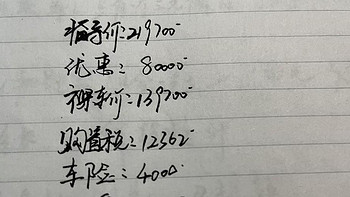 指导价:219700
优惠: 80000
裸车价:139700
购置税:12362
车险:4000